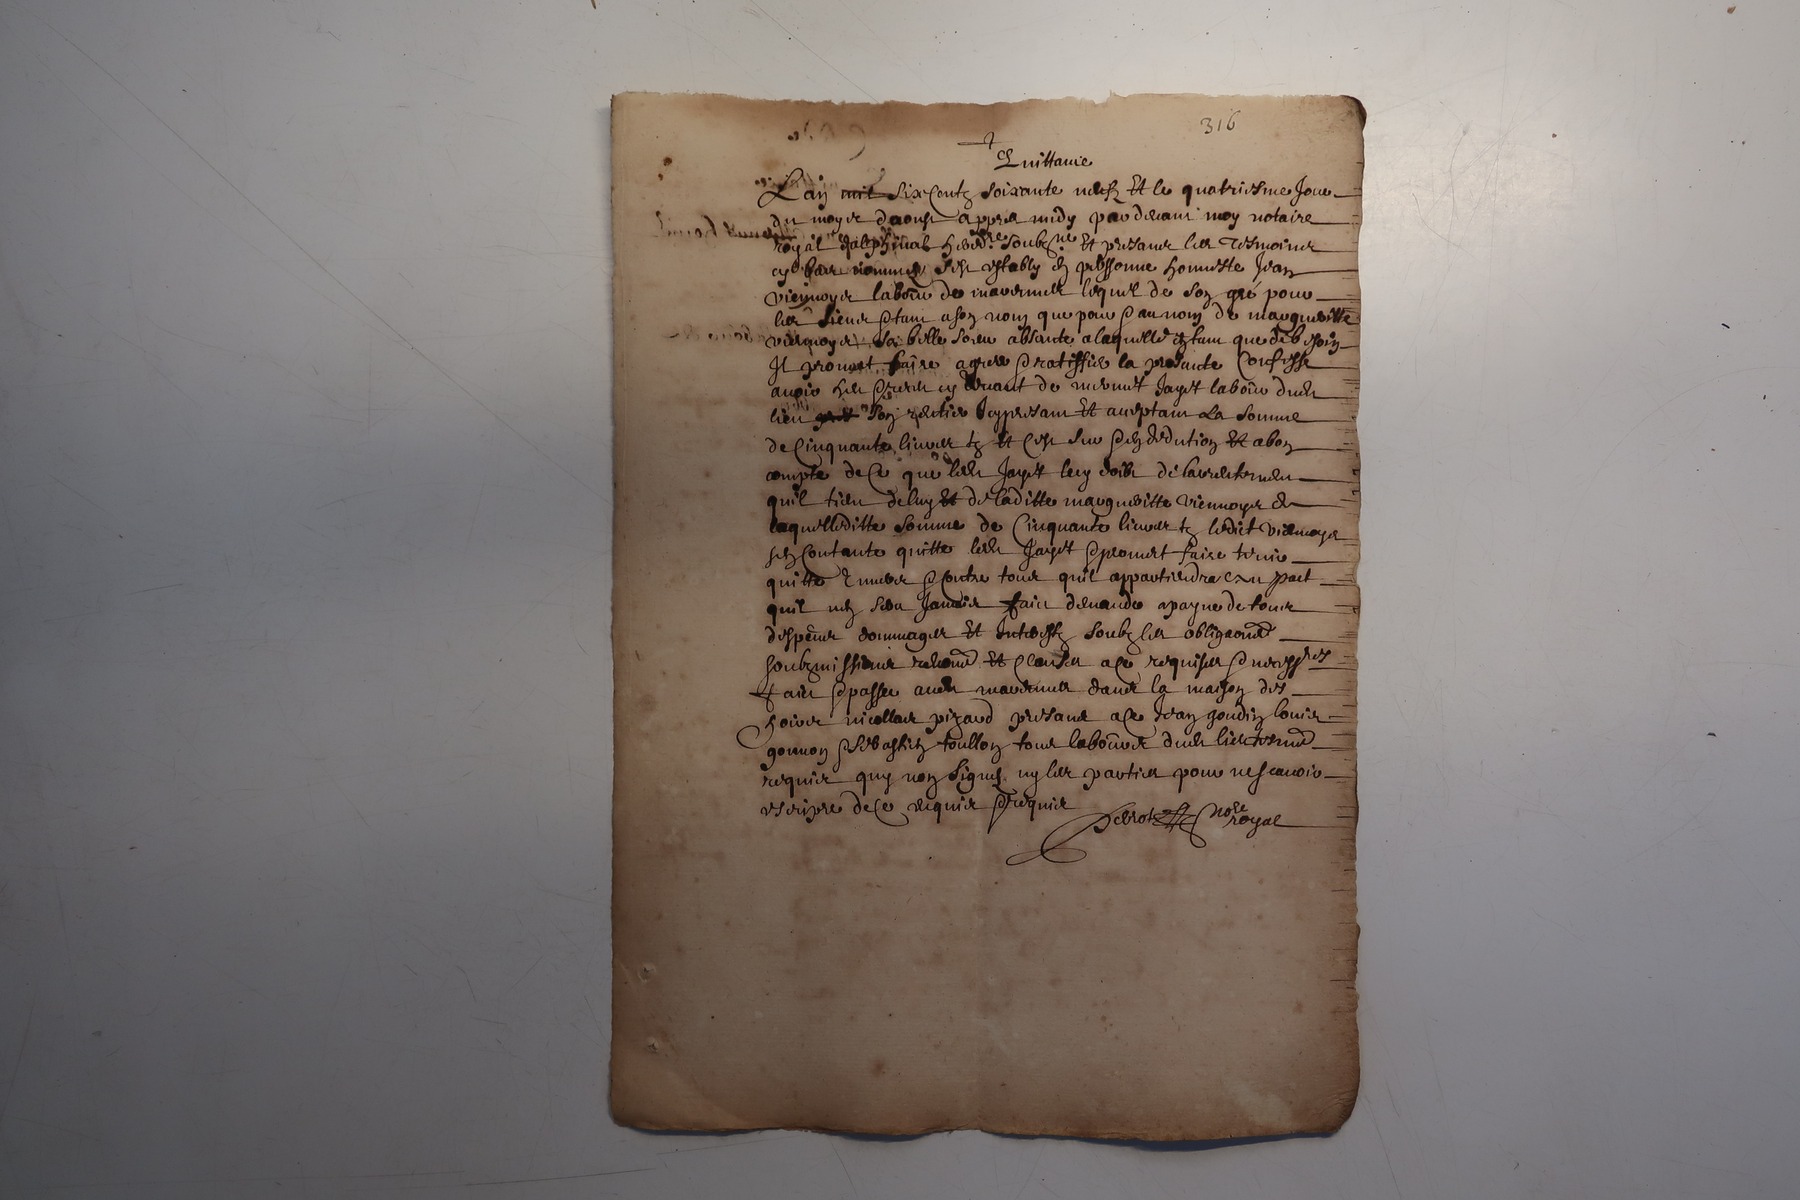 316
Quittance
Lan mil six centz soixante neufz Et le quatriesme Jour
du moys daoust appres midy par devant moy notaire
royal dalphinal heredre soubzne Et presans les tesmoins
cy bas nommes sest estably en perssonne honneste Jean
viennoys labour de laquel de son gré pour
les siens tant a son nom que pour au nom de margueritte
viennoys sa belle soeur absante a laquelle tant que de besoin
Il promet faire agreer ratiffier la presante Confesse
avoir heu receu cy devant de Jayet labour dudt
lieu son rentier Icy presant Et acceptant La somme
de Cinquante livres tz Et cest sur dedution Et a bon
compte de Ce que ledt Jayet luy doibt
quil tient de luy Et de laditte margueritte viennoys de
laquelleditte somme de Cinquante livres tz ledit viennoys
Contante quitte ledt Jayet promet faire tenir
quitte Envers Contre tous quil appartiendra pact
quil nen sera Jamais faict demande a payne de tous
despens dommages Et Interestz soubz les obligaons
soubzmissions Et Clauses a Ce requises
faict passé audt dans la maison des
hoirs nicollas pizard presans a Ce Jean gondin louis
gonnon sebastien toullon tous labours dudt lieu
requis quy non signé ny les parties pour ne scavoir
escripre de Ce requis requis
nore
royal